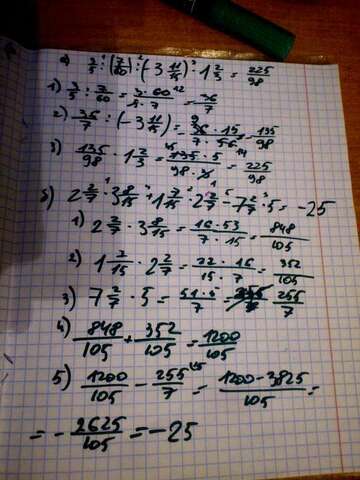 а) 3/5 : (7/60) : (-3 11/15) · 1 2/3 = 225/98
1) 3/5 : 7/60 = 3·60/5·7 = 36/7
2) 36/7 : (-3 11/15) = 36·15/7·56 = 135/98
3) 135/98 · 1 2/3 = 135·5/98·3 = 225/98
б) 2 2/7 · 3 8/15 + 1 7/15 · 2 2/7 - 7 2/7 · 5 = -25
1) 2 2/7 · 3 8/15 = 16·53/7·15 = 848/105
2) 1 7/15 · 2 2/7 = 22·16/15·7 = 352/105
3) 7 2/7 · 5 = 51·5/7 = 255/7
4) 848/105 + 352/105 = 1200/105
5) 1200/105 - 255/7 = 1200-3825/105 =
= - 2625/105 = -25